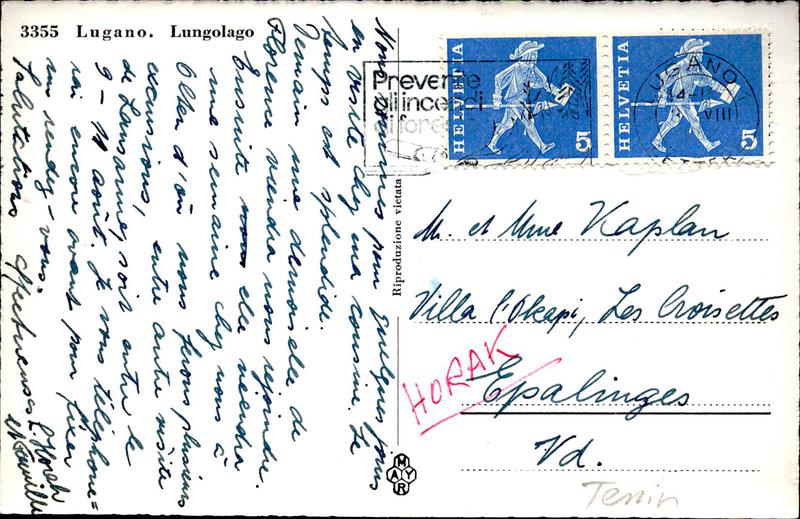 3355 Lugano. Lungolago
Nous sommes pour quelques jours
en visite chez ma cousine. Le
temps est splendide.
Demain une demoiselle de
Florence viendra nous rejoindre.
Ensuite elle viendra
une semaine chez nous à
Olten d'où nous ferons plusieurs
excursions, entre autre visite
de Lausanne, soit entre le
9-11 août. Je vous téléphone=
rai encore avant pour fixer
un rendez-vous.
Salutations affectueuses L. Horak
et famille
Riproduzione vietata
MAYR
HELVETIA 5
HELVETIA 5
Prevenite
gli incendi
di foresta
LUGANO 1
VIII
M. et Mme Kaplan
Villa l'Okapi, Les Croisettes
HORAK
Epalinges
Vd.
Tessin